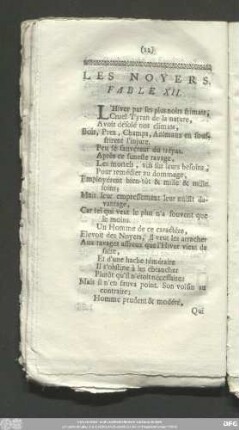 (22)
LES NOYERS.
FABLE XII.
L'Hiver par ses plus noirs frimats,
Cruel Tyran de la nature,
Avoit désolé nos climats,
Bois, Prez, Champs, Animaux en
frirent l'injure.
Peu se sauvérent du trépas.
Après ce funeste ravage,
Les mortels, vûs sur leurs besoins,
Pour remédier au dommage,
Employérent bien-tôt & mille & mille
soins;
Mais leur empressement leur nuisit da-
vantage,
Car tel qui veut le plus n'a souvent que
le moins.
Un Homme de ce caractère,
Elevoit des Noyers, il veut les arracher
Aux ravages affreux que l'Hiver vient de
faire,
Et d'une hache téméraire
Il s'obstine à les ébrancher
Plutôt qu'il n'étoit nécessaire:
Mais il n'en sauva point. Son voisin au
contraire;
Homme prudent & modéré,
Qui